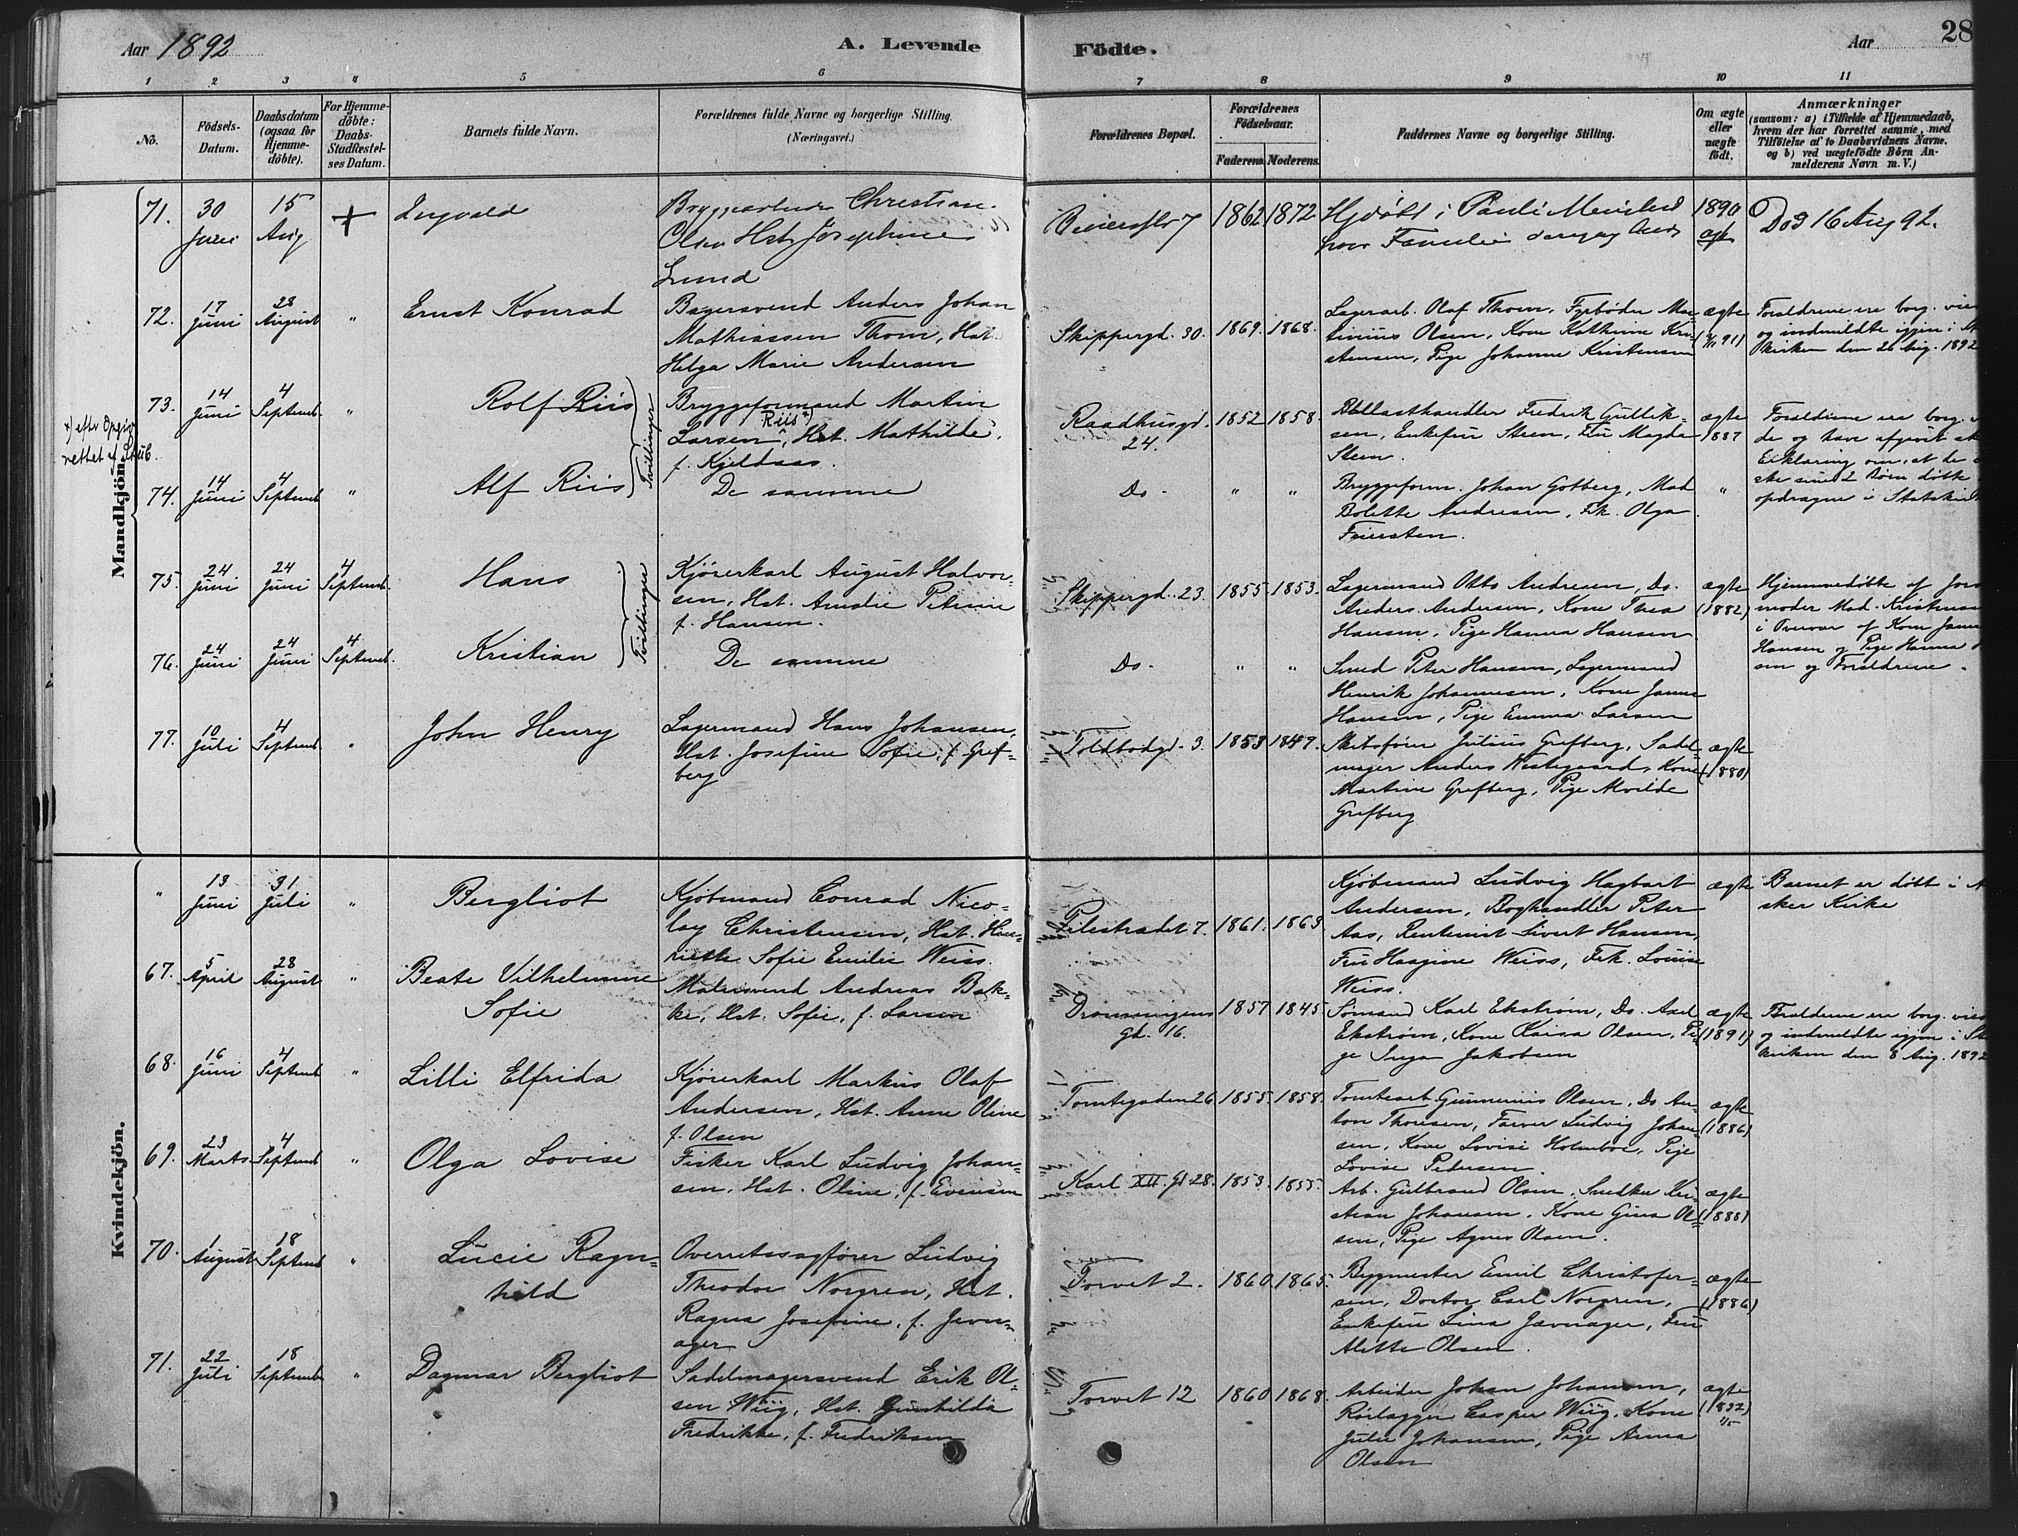 Aar 1892
A. Levende
Födte.
Aar
28
1 2 3 4 5 6 7 8 9 10 11
No.
Födsels-Datum.
Daabsdatum (ogsaa for Hjemme-döbte).
For Hjemme-döbte: Daabs-Stadfæstel-ses Datum.
Barnets fulde Navn.
Forældrenes fulde Navne og borgerlige Stilling.
(Næringsvei.)
Forældrenes Bopæl.
Forældrenes Födselsaar.
Faderens. Moderens.
Faddernes Navne og borgerlige Stilling.
Om ægte eller uægte födt.
Anmærkninger
(saasom: a) i Tilfælde af Hjemmedaab, hvem der har forrettet samme, med Tilföielse af to Daabsvidners Navne, og b) ved uægtefödte Börn An-melderens Navn m. V.)
Mandkjön.
71. 30 Juni 15 Aug + Ingvald
Christian
Olsen Hst Josephine
Lund
7 1862 1872
1890
Död 16 Aug 92.
72. 17 Juni 28 August " Ernst Konrad
Bagersvend Anders Johan
Mathiassen Thom, Hst.
Helga Marie Andersen
Skippergd. 30. 1869. 1868.
Lagerarb. Olaf Thom, Fyrböder Mar-
tinius Olsen, Kone Kathrine Kri-
stensen, Pige Johanne Kristensen
ægte
Forældrene ere borg. vie
og indmeldte igjen i
kirken den 26 Aug. 1892
73. 14 Juni 4 Septemb. " Rolf Riis
Tvillinger
Bryggeformand Martin
Larsen Riis, Hst. Mathilde,
f. Kjeldaas.
Raadhusgd. 24. 1852 1858.
Ballasthandler Fredrik Gullik-
sen, Enkefru Steen, Fru Magda
Steen.
ægte 1887
Forældrene ere borg.
de og have afgivet
Erklæring om, at de
ske sine 2 Börn döbte
opdragne i Statskirk
74. 14 Juni 4 Septemb. " Alf Riis
De samme
Do. " "
Bryggeform. Johan Gotberg, Mad.
Bolette Andresen, Frk. Olga
Feiersten.
"
75. 24 Juni 24 Juni 4 Septemb. Hans
Tvillinger
Kjörerkarl August Halvor-
sen, Hst. Amalie Petrine
f. Hansen.
Skippergd. 23. 1855. 1853.
Lagermand Otto Andresen, Do.
Anders Andersen, Kone Thea
Hansen, Pige Hanna Hansen
ægte (1882)
Hjemmedöbte af Jord-
moder Mad. Kristensen
i Overvær af Kone Janna
Hansen og Pige Hanna
sen og Forældrene.
76. 24 Juni 24 Juni 4 Septemb. Kristian
De samme
Do. " "
Smed Peter Hansen, Lagermand
Henrik Johannesen, Kone Janna
Hansen, Pige Emma Larsen
77. 10 Juli 4 Septemb. " John Henry
Lagermand Hans Johansen,
Hst. Josefine Sofie, f. Gref-
berg
Toldbodgd. 3. 1853 1847.
Skibsförer Julius Grefberg, Sadel-
mager Anders Westgaard, Kone
Martine Grefberg, Pige Alvilde
Grefberg
ægte (1880)
Kvindekjön.
" 13 Juni 31 Juli " Bergliot
Kjöbmand Conrad Nico-
lay Christensen, Hst. Hen-
riette Sofie Emilie Weiss.
Pilestrædet 7. 1861. 1863
Kjöbmand Ludvig Hagbart
Andersen, Boghandler Peter
Aas, Rentenist Sivert Hansen,
Fru Haagine Weiss, Frk. Louise
Weiss.
ægte
Barnet er döbt i A
sker Kirke
67. 5 April 28 August " Beate Vilhelmine
Sofie
Malersvend Andreas Bak-
ke, Hst. Sofie, f. Larsen
Dronningens
gd. 16. 1857 1845.
Sömand Karl Ekström, Do. Axel
Ekström, Kone Kaisa Olsen, Pi-
ge Inga Jakobsen
ægte (1891)
Forældrene ere borg. vied
og indmeldte igjen i Sta
kirken den 8 Aug. 1892
68. 16 Juni 4 Septemb. " Lilli Elfrida
Kjörerkarl Markus Olaf
Andersen, Hst. Anne Oline
f. Olsen
Tomtegaden 26 1855. 1858.
Tomtearb. Gunnenius Olsen, Do. An-
ton Thoresen, Farver Ludvig Johan-
sen, Kone Lovise Holmboe, Pige
Lovise Pedersen.
ægte (1886)
69. 23 Marts 4 Septemb. " Olga Lovise
Fisker Karl Ludvig Johan-
sen, Hst. Oline, f. Evensen
Karl XII. Gd. 28. 1853. 1855.
Arb. Gulbrand Olsen, Snedker Kri-
stian Johansen, Kone Gina Ol-
sen, Pige Agnes Olsen.
ægte (1888)
70. 1 August 18 Septemb. " Lucie Ragn-
hild
Overretssagförer Ludvig
Theodor Norgren, Hst.
Ragna Josefine, f. Jevn-
ager
Torvet 2. 1860. 1865.
Bygmester Emil Christofer-
sen, Doctor Carl Norgren,
Enkefru Lina Jævnager, Fru
Alette Olsen.
ægte (1886)
71. 22 Juli 18 Septemb. " Dagmar Bergliot
Sadelmagersvend Erik Ol-
sen Wiig, Hst. Gunhilda
Fredrikke, f. Fredriksen
Torvet 12 1860 1868.
Arbeider Johan Johansen,
Rörlægger Casper Wiig, Kone
Julie Johansen, Pige Anna
Olsen
ægte (1892)